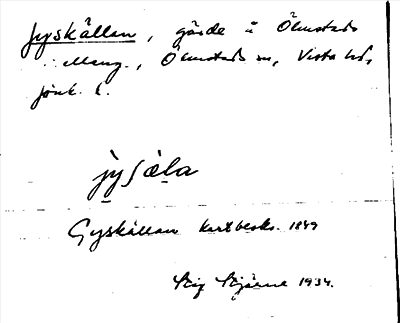 Jyskällan, gärde i Ölmstads
Meng., Ölmstads sn, Vista hd,
Jönk. l.
jyſæla
Gyskällan kartbeskr. 1849
Stig Bjärne 1934.